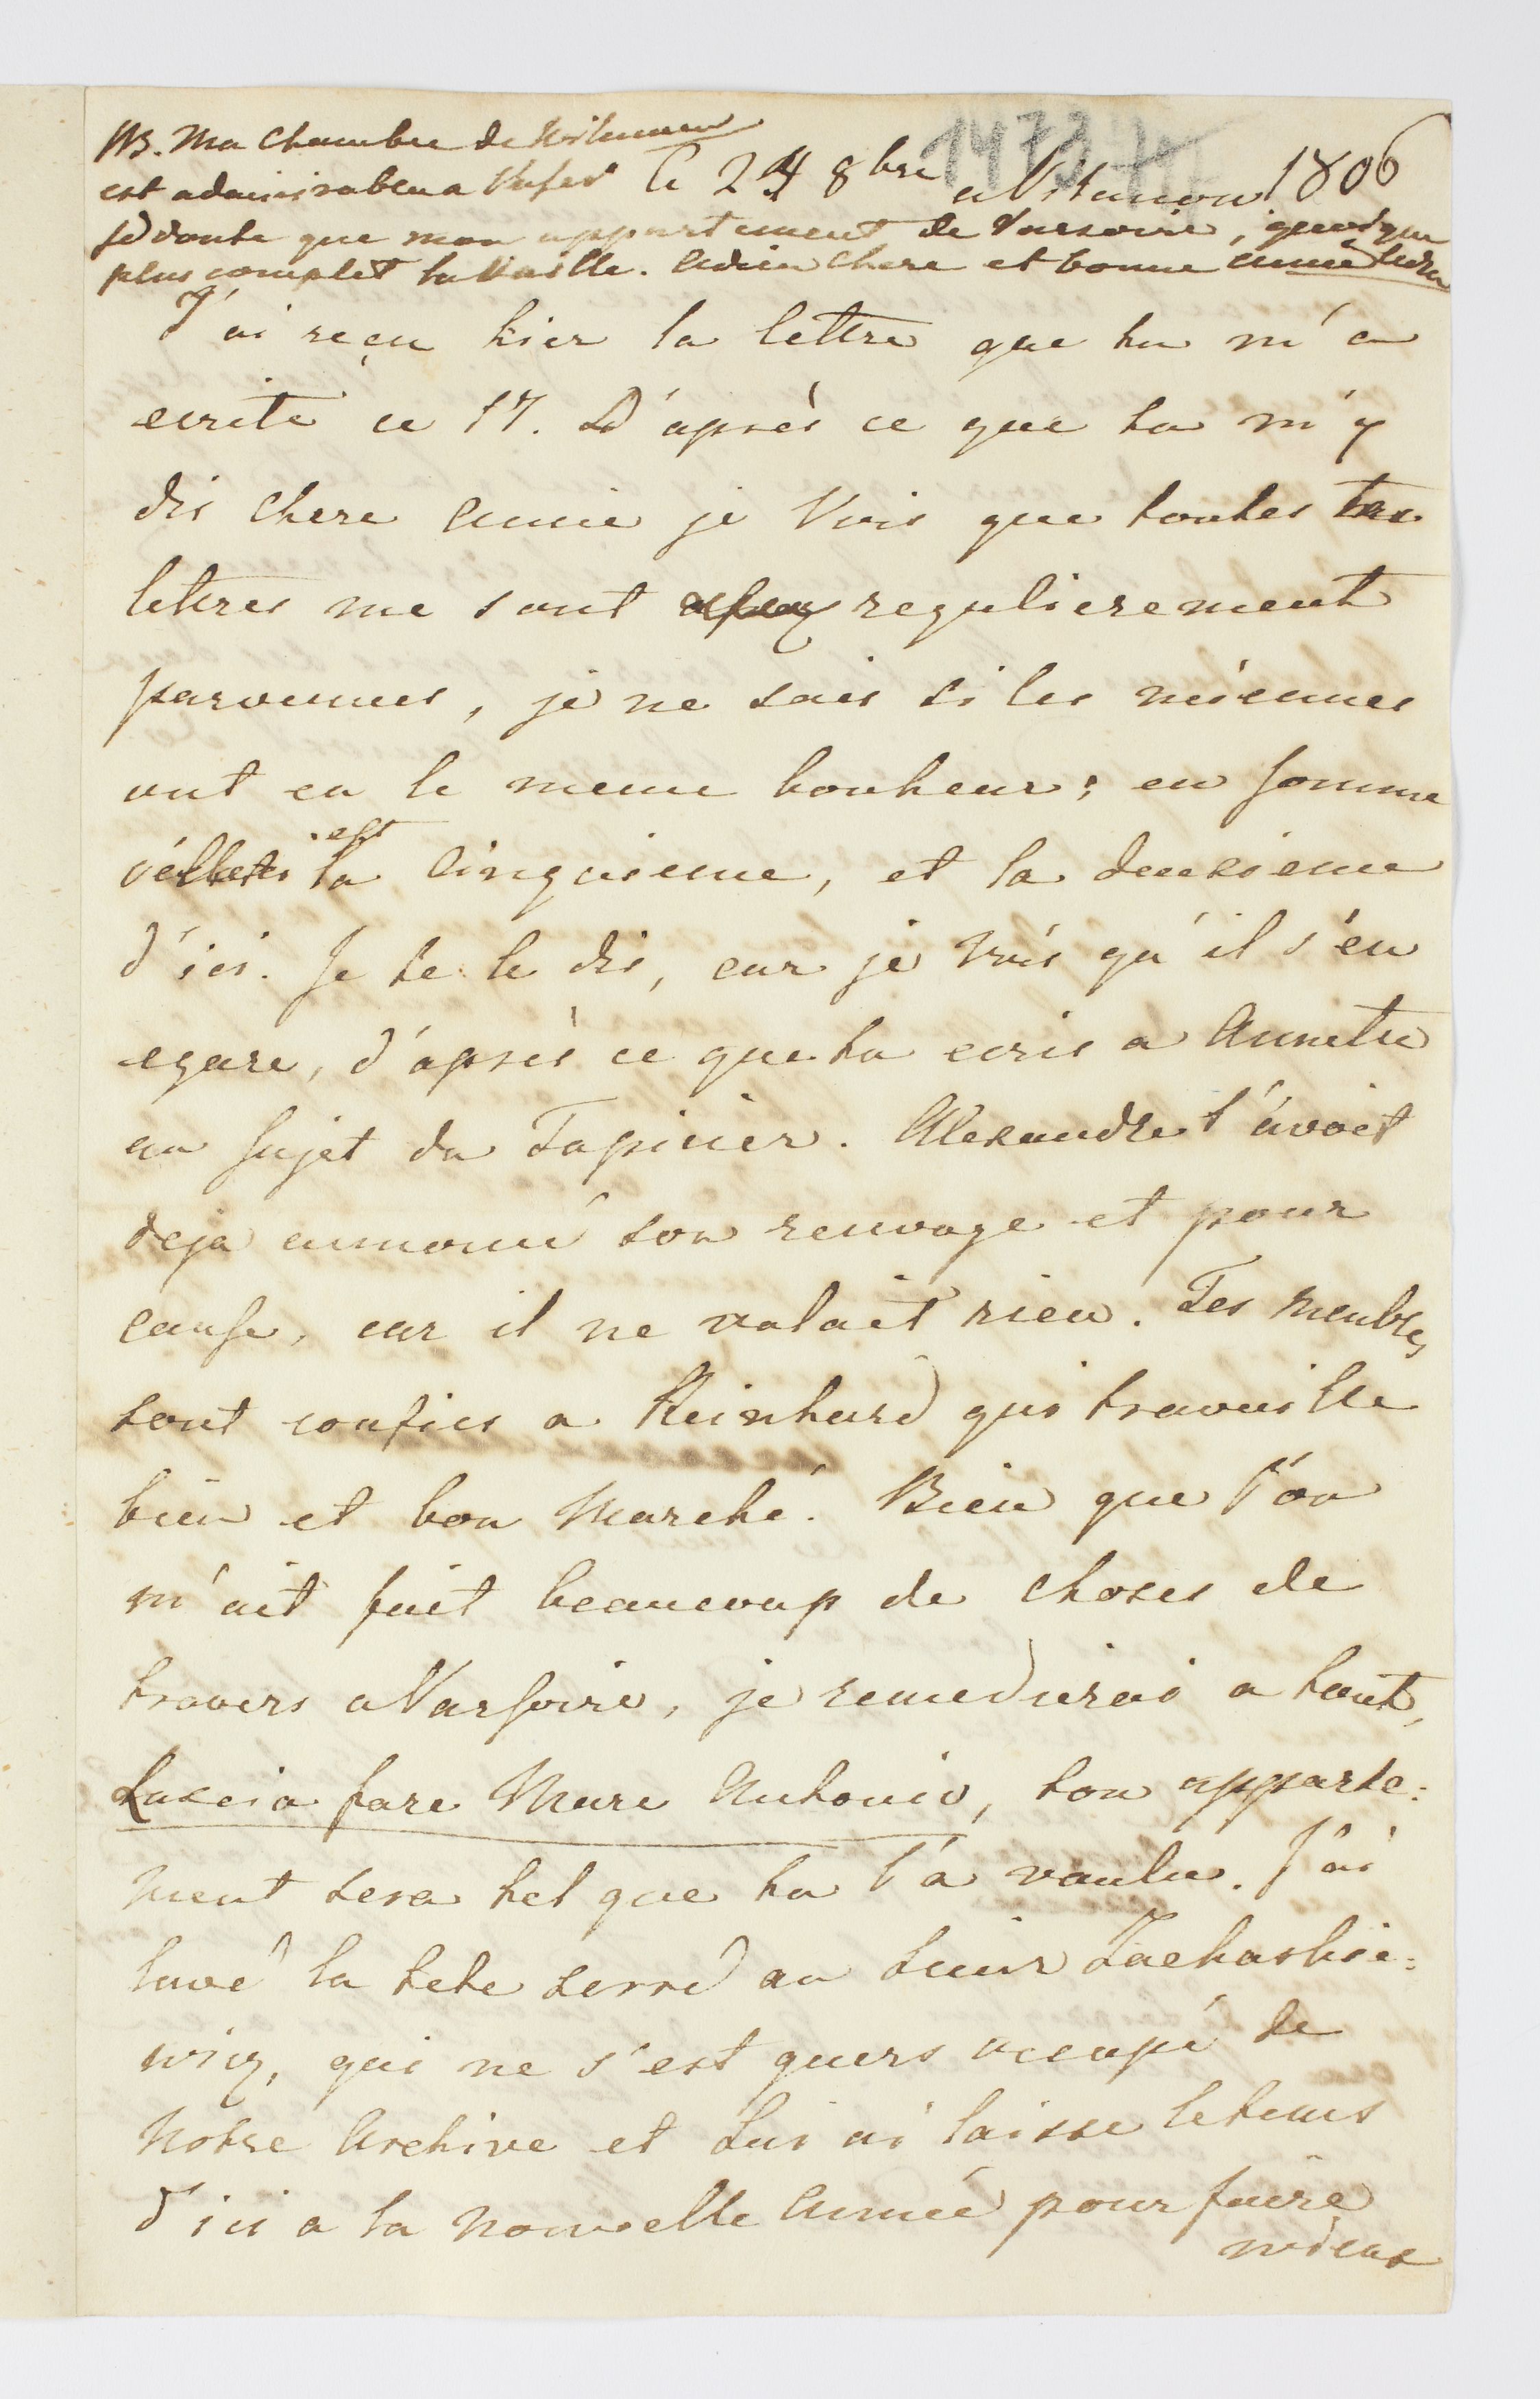 NB. Ma Chambre de Wilanow
est admirable a
le 24 8bre a Vilanow 1806
1473
je doute que mon appartement de Varsovie, quoique
plus complet la vaille. Adieu chere et bonne amie
J'ai reçu hier la lettre que tu m'a
ecrite ce 17. D'aprés ce que tu m'y
dis chere Amie je Vois que toutes tes
lettres me sont regulierement
parvenues, je ne sais si les miennes
ont eu le meme bonheur; en somme
est la Cinquieme, et la deuxieme
d'ici. Je te le dis, car je vois qu'il s'en
egare, d'aprés ce que tu ecris a Annette
au sujet du Tapicier. Alexandre t'avoit
deja annoncé son renvoye et pour
cause, car il ne valait rien. Tes Meubles
sont confies a Reinhard qui travaille
bien et bon Marché. Bien que l'on
m'ait fait beaucoup de choses de
travers a Varsovie, je remedierai a tout,
Lascia fare Marc Antonio, ton apparte:
ment sera tel que tu l'a voulu. J'ai
lavé la tete au Sieur
wicz, qui ne s'est guers occupé de
Notre Archive et Lui ai laissé le tems
d'ici a la Nouvelle Année pour faire
mieux